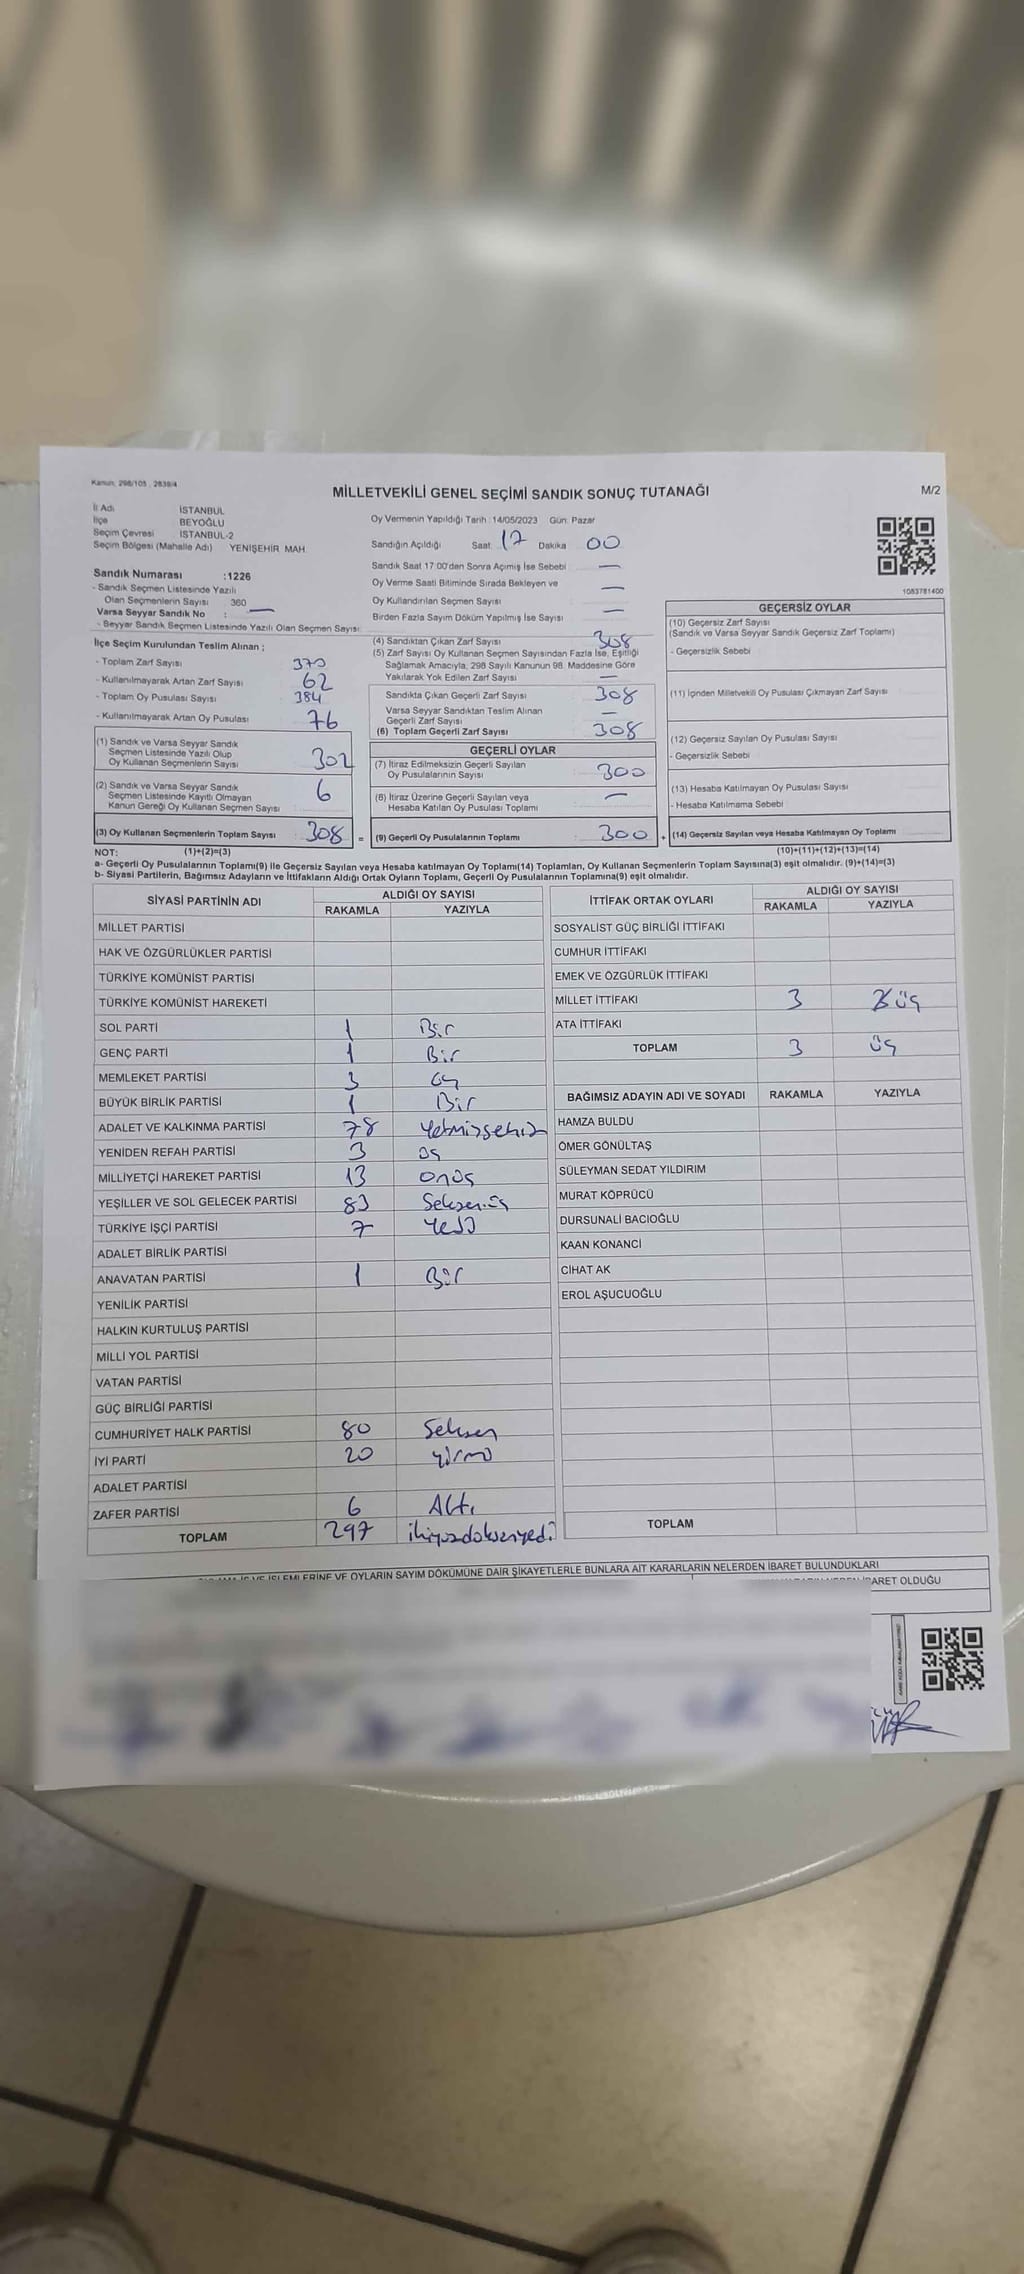 Kanun, 298/105 , 2839/4
MİLLETVEKİLİ GENEL SEÇİMİ SANDIK SONUÇ TUTANAĞI
M/2
İl Adı İSTANBUL
İlçe BEYOĞLU
Seçim Çevresi İSTANBUL-2
Seçim Bölgesi (Mahalle Adı) YENİŞEHİR MAH.
Sandık Numarası :1226
- Sandık Seçmen Listesinde Yazılı
Olan Seçmenlerin Sayısı : 360
Varsa Seyyar Sandık No : —
- Seyyar Sandık Seçmen Listesinde Yazılı Olan Seçmen Sayısı:
Oy Vermenin Yapıldığı Tarih :14/05/2023 Gün: Pazar
Sandığın Açıldığı Saat 17 Dakika 00
Sandık Saat 17:00'den Sonra Açımış İse Sebebi —
Oy Verme Saati Bitiminde Sırada Bekleyen ve —
Oy Kullandırılan Seçmen Sayısı
Birden Fazla Sayım Döküm Yapılmış İse Sayısı —
1083781400
İlçe Seçim Kurulundan Teslim Alınan ;
- Toplam Zarf Sayısı 370
- Kullanılmayarak Artan Zarf Sayısı 62
- Toplam Oy Pusulası Sayısı 384
- Kullanılmayarak Artan Oy Pusulası 76
(1) Sandık ve Varsa Seyyar Sandık
Seçmen Listesinde Yazılı Olup
Oy Kullanan Seçmenlerin Sayısı 302
(2) Sandık ve Varsa Seyyar Sandık
Seçmen Listesinde Kayıtlı Olmayan
Kanun Gereği Oy Kullanan Seçmen Sayısı 6
(3) Oy Kullanan Seçmenlerin Toplam Sayısı : 308 =
(4) Sandıktan Çıkan Zarf Sayısı 308
(5) Zarf Sayısı Oy Kullanan Seçmen Sayısından Fazla İse, Eşitliği
Sağlamak Amacıyla, 298 Sayılı Kanunun 98. Maddesine Göre
Yakılarak Yok Edilen Zarf Sayısı —
Sandıkta Çıkan Geçerli Zarf Sayısı 308
Varsa Seyyar Sandıktan Teslim Alınan
Geçerli Zarf Sayısı —
(6) Toplam Geçerli Zarf Sayısı 308
GEÇERLİ OYLAR
(7) İtiraz Edilmeksizin Geçerli Sayılan
Oy Pusulalarının Sayısı 300
(8) İtiraz Üzerine Geçerli Sayılan veya
Hesaba Katılan Oy Pusulası Toplamı —
(9) Geçerli Oy Pusulalarının Toplamı : 300 +
GEÇERSİZ OYLAR
(10) Geçersiz Zarf Sayısı
(Sandık ve Varsa Seyyar Sandık Geçersiz Zarf Toplamı)
- Geçersizlik Sebebi
(11) İçinden Milletvekili Oy Pusulası Çıkmayan Zarf Sayısı
(12) Geçersiz Sayılan Oy Pusulası Sayısı
- Geçersizlik Sebebi
(13) Hesaba Katılmayan Oy Pusulası Sayısı
- Hesaba Katılmama Sebebi
(14) Geçersiz Sayılan veya Hesaba Katılmayan Oy Toplamı
NOT: (1)+(2)=(3) (10)+(11)+(12)+(13)=(14)
a- Geçerli Oy Pusulalarının Toplamı(9) ile Geçersiz Sayılan veya Hesaba katılmayan Oy Toplamı(14) Toplamları, Oy Kullanan Seçmenlerin Toplam Sayısına(3) eşit olmalıdır. (9)+(14)=(3)
b- Siyasi Partilerin, Bağımsız Adayların ve İttifakların Aldığı Ortak Oyların Toplamı, Geçerli Oy Pusulalarının Toplamına(9) eşit olmalıdır.
SİYASİ PARTİNİN ADI ALDIĞI OY SAYISI
RAKAMLA YAZIYLA
MİLLET PARTİSİ
HAK VE ÖZGÜRLÜKLER PARTİSİ
TÜRKİYE KOMÜNİST PARTİSİ
TÜRKİYE KOMÜNİST HAREKETİ
SOL PARTİ 1 Bir
GENÇ PARTİ 1 Bir
MEMLEKET PARTİSİ 3 üç
BÜYÜK BİRLİK PARTİSİ 1 Bir
ADALET VE KALKINMA PARTİSİ 78 Yetmişsekiz
YENİDEN REFAH PARTİSİ 3 üç
MİLLİYETÇİ HAREKET PARTİSİ 13 onüç
YEŞİLLER VE SOL GELECEK PARTİSİ 83 Seksenüç
TÜRKİYE İŞÇİ PARTİSİ 7 Yedi
ADALET BİRLİK PARTİSİ
ANAVATAN PARTİSİ 1 Bir
YENİLİK PARTİSİ
HALKIN KURTULUŞ PARTİSİ
MİLLİ YOL PARTİSİ
VATAN PARTİSİ
GÜÇ BİRLİĞİ PARTİSİ
CUMHURİYET HALK PARTİSİ 80 Seksen
İYİ PARTİ 20 yirmi
ADALET PARTİSİ
ZAFER PARTİSİ 6 Altı
TOPLAM 297 ikiyüzdoksanyedi
İTTİFAK ORTAK OYLARI ALDIĞI OY SAYISI
RAKAMLA YAZIYLA
SOSYALİST GÜÇ BİRLİĞİ İTTİFAKI
CUMHUR İTTİFAKI
EMEK VE ÖZGÜRLÜK İTTİFAKI
MİLLET İTTİFAKI 3 üç
ATA İTTİFAKI
TOPLAM 3 üç
BAĞIMSIZ ADAYIN ADI VE SOYADI RAKAMLA YAZIYLA
HAMZA BULDU
ÖMER GÖNÜLTAŞ
SÜLEYMAN SEDAT YILDIRIM
MURAT KÖPRÜCÜ
DURSUNALİ BACIOĞLU
KAAN KONANCİ
CİHAT AK
EROL AŞUCUOĞLU
TOPLAM
VE OYLARIN SAYIM DÖKÜMÜNE DAİR ŞİKAYETLERLE BUNLARA AİT KARARLARIN NELERDEN İBARET BULUNDUKLARI
OLDUĞU